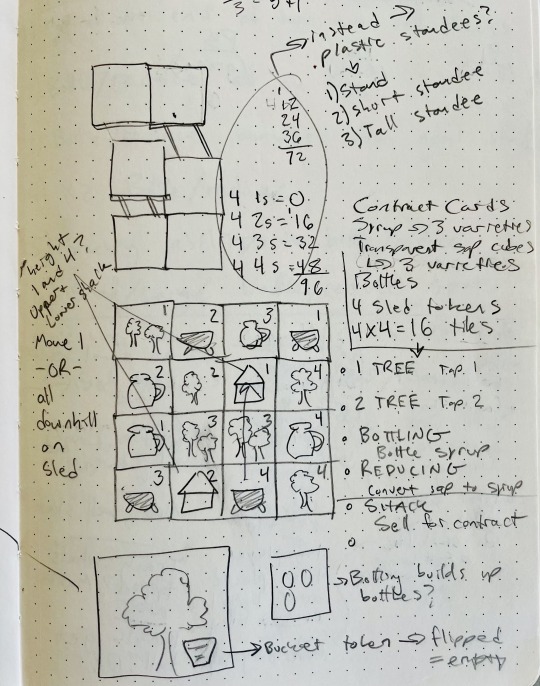 instead →
plastic standees?
1) Stand
2) short standee
3) Tall standee
12
24
36
72
4 1s = 0
4 2s = 16
4 3s = 32
4 4s = 48
96
Contract Cards
Syrup → 3 varieties
Transparent sap cubes
↳ 3 varieties
Bottles
4 Sled tokens
4x4 = 16 tiles
height
1 and 4?
Upper
Lower shack
Move 1
-OR-
all
downhill
on
sled
1 2 3 1
2 2 1 4
1 3 3 4
3 2 4 4
• 1 TREE Tap 1
• 2 TREE Tap 2
• BOTTLING
Bottle syrup
• REDUCING
Convert sap to syrup
• SHACK
Sell for contract
→ Bottling builds up
bottles?
→ Bucket token → flipped
= empty